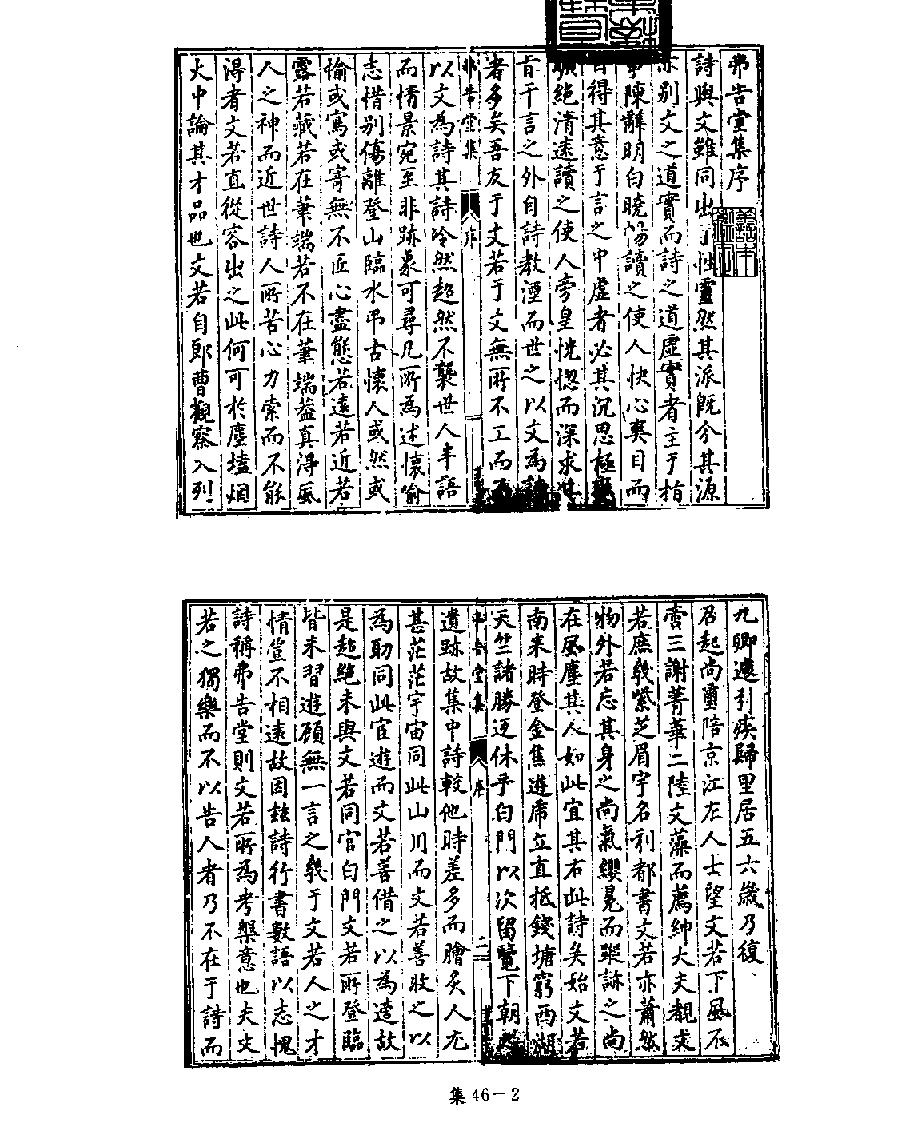 弗告堂集序
詩與文雖同出于性靈然其派既分其源
亦別文之道實而詩之道虛實者主于指
事陳辭明白曉暢讀之使人快心爽目而
自得其意于言之中虛者必其沉思極
曠絕清遠讀之使人旁皇恍惚而深求其
旨于言之外自詩教湮而世之以文為詩
者多矣吾友于文若于文無所不工而不
弗告堂集 序
以文為詩其詩泠然超然不襲世人半語
而情景宛至非跡象可尋凡所為述懷喻
志惜別傷離登山臨水弔古懷人或然或
愉或寫或寄無不匠心盡態若遠若近若
露若藏若在筆端若不在筆端蓋真得風
人之神而近世詩人所苦心力索而不能
得者文若直從容出之此何可於塵壒烟
火中論其才品也文若自郎曹觀察入列
九卿遽引疾歸里居五六歲乃復
召起尚璽陪京江左人士望文若下風不
啻三謝菁華二陸文藻而薦紳大夫覯求
若庶幾紫芝眉宇名利都書文若亦蕭然
物外若忘其身之尚氣纓冕而蹤跡之尚
在風塵其人如此宜其有此詩矣始文若
南來時登金焦遊席立直抵錢塘窮西湖
天竺諸勝迺休乎白門以次留覽下朝
弗告堂集 序 二
遺跡故集中詩較他時差多而膾炙人尤
甚茫茫宇宙同此山川而文若善收之以
為助同此宦遊而文若善借之以為遣故
是超絕未與文若同官白門文若所登臨
皆未習遊顧無一言之幾于文若人之才
情豈不相遠故因茲詩行書數語以志愧
詩稱弗告堂則文若所為考槃意也夫文
若之獨樂而不以告人者乃不在于詩而
集46－2